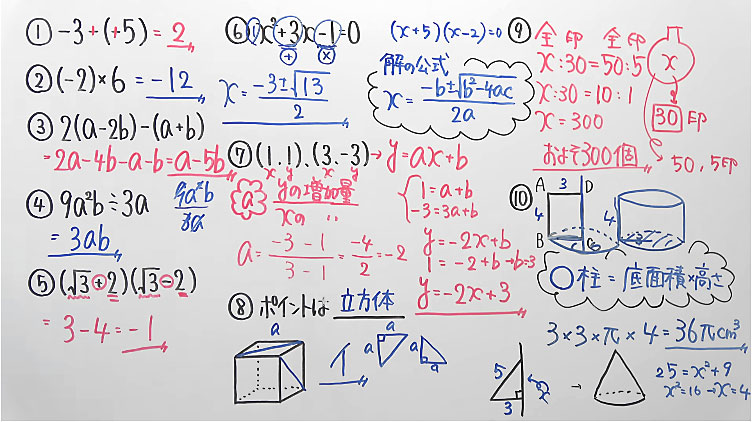 ① -3+(+5)=2
② (-2)×6=-12
③ 2(a-2b)-(a+b)
=2a-4b-a-b=a-5b
④ 9a²b÷3a 9a²b/3a
=3ab
⑤ (√3+2)(√3-2)
=3-4=-1
⑥ ①x²+3x-1=0 (x+5)(x-2)=0
⊕ ⊗
x=-3±√13/2
解の公式
x=-b±√b²-4ac/2a
⑦ (1,1)、(3,-3)→y=ax+b
x y x y
a yの増加量/xの 〃
1=a+b
-3=3a+b
a=-3-1/3-1=-4/2=-2
y=-2x+b
1=-2+b→b=3
y=-2x+3
⑧ ポイントは 立方体
a
イ
a a a a
⑨ 全 印 全 印
x:30=50:5
x:30=10:1
x=300
およそ300個
x
30印
50、5印
⑩ A 3 D
4
B C
4
3
○柱=底面積×高さ
3×3×π×4=36πcm³
5 x
3
→
25=x²+9
x²=16→x=4